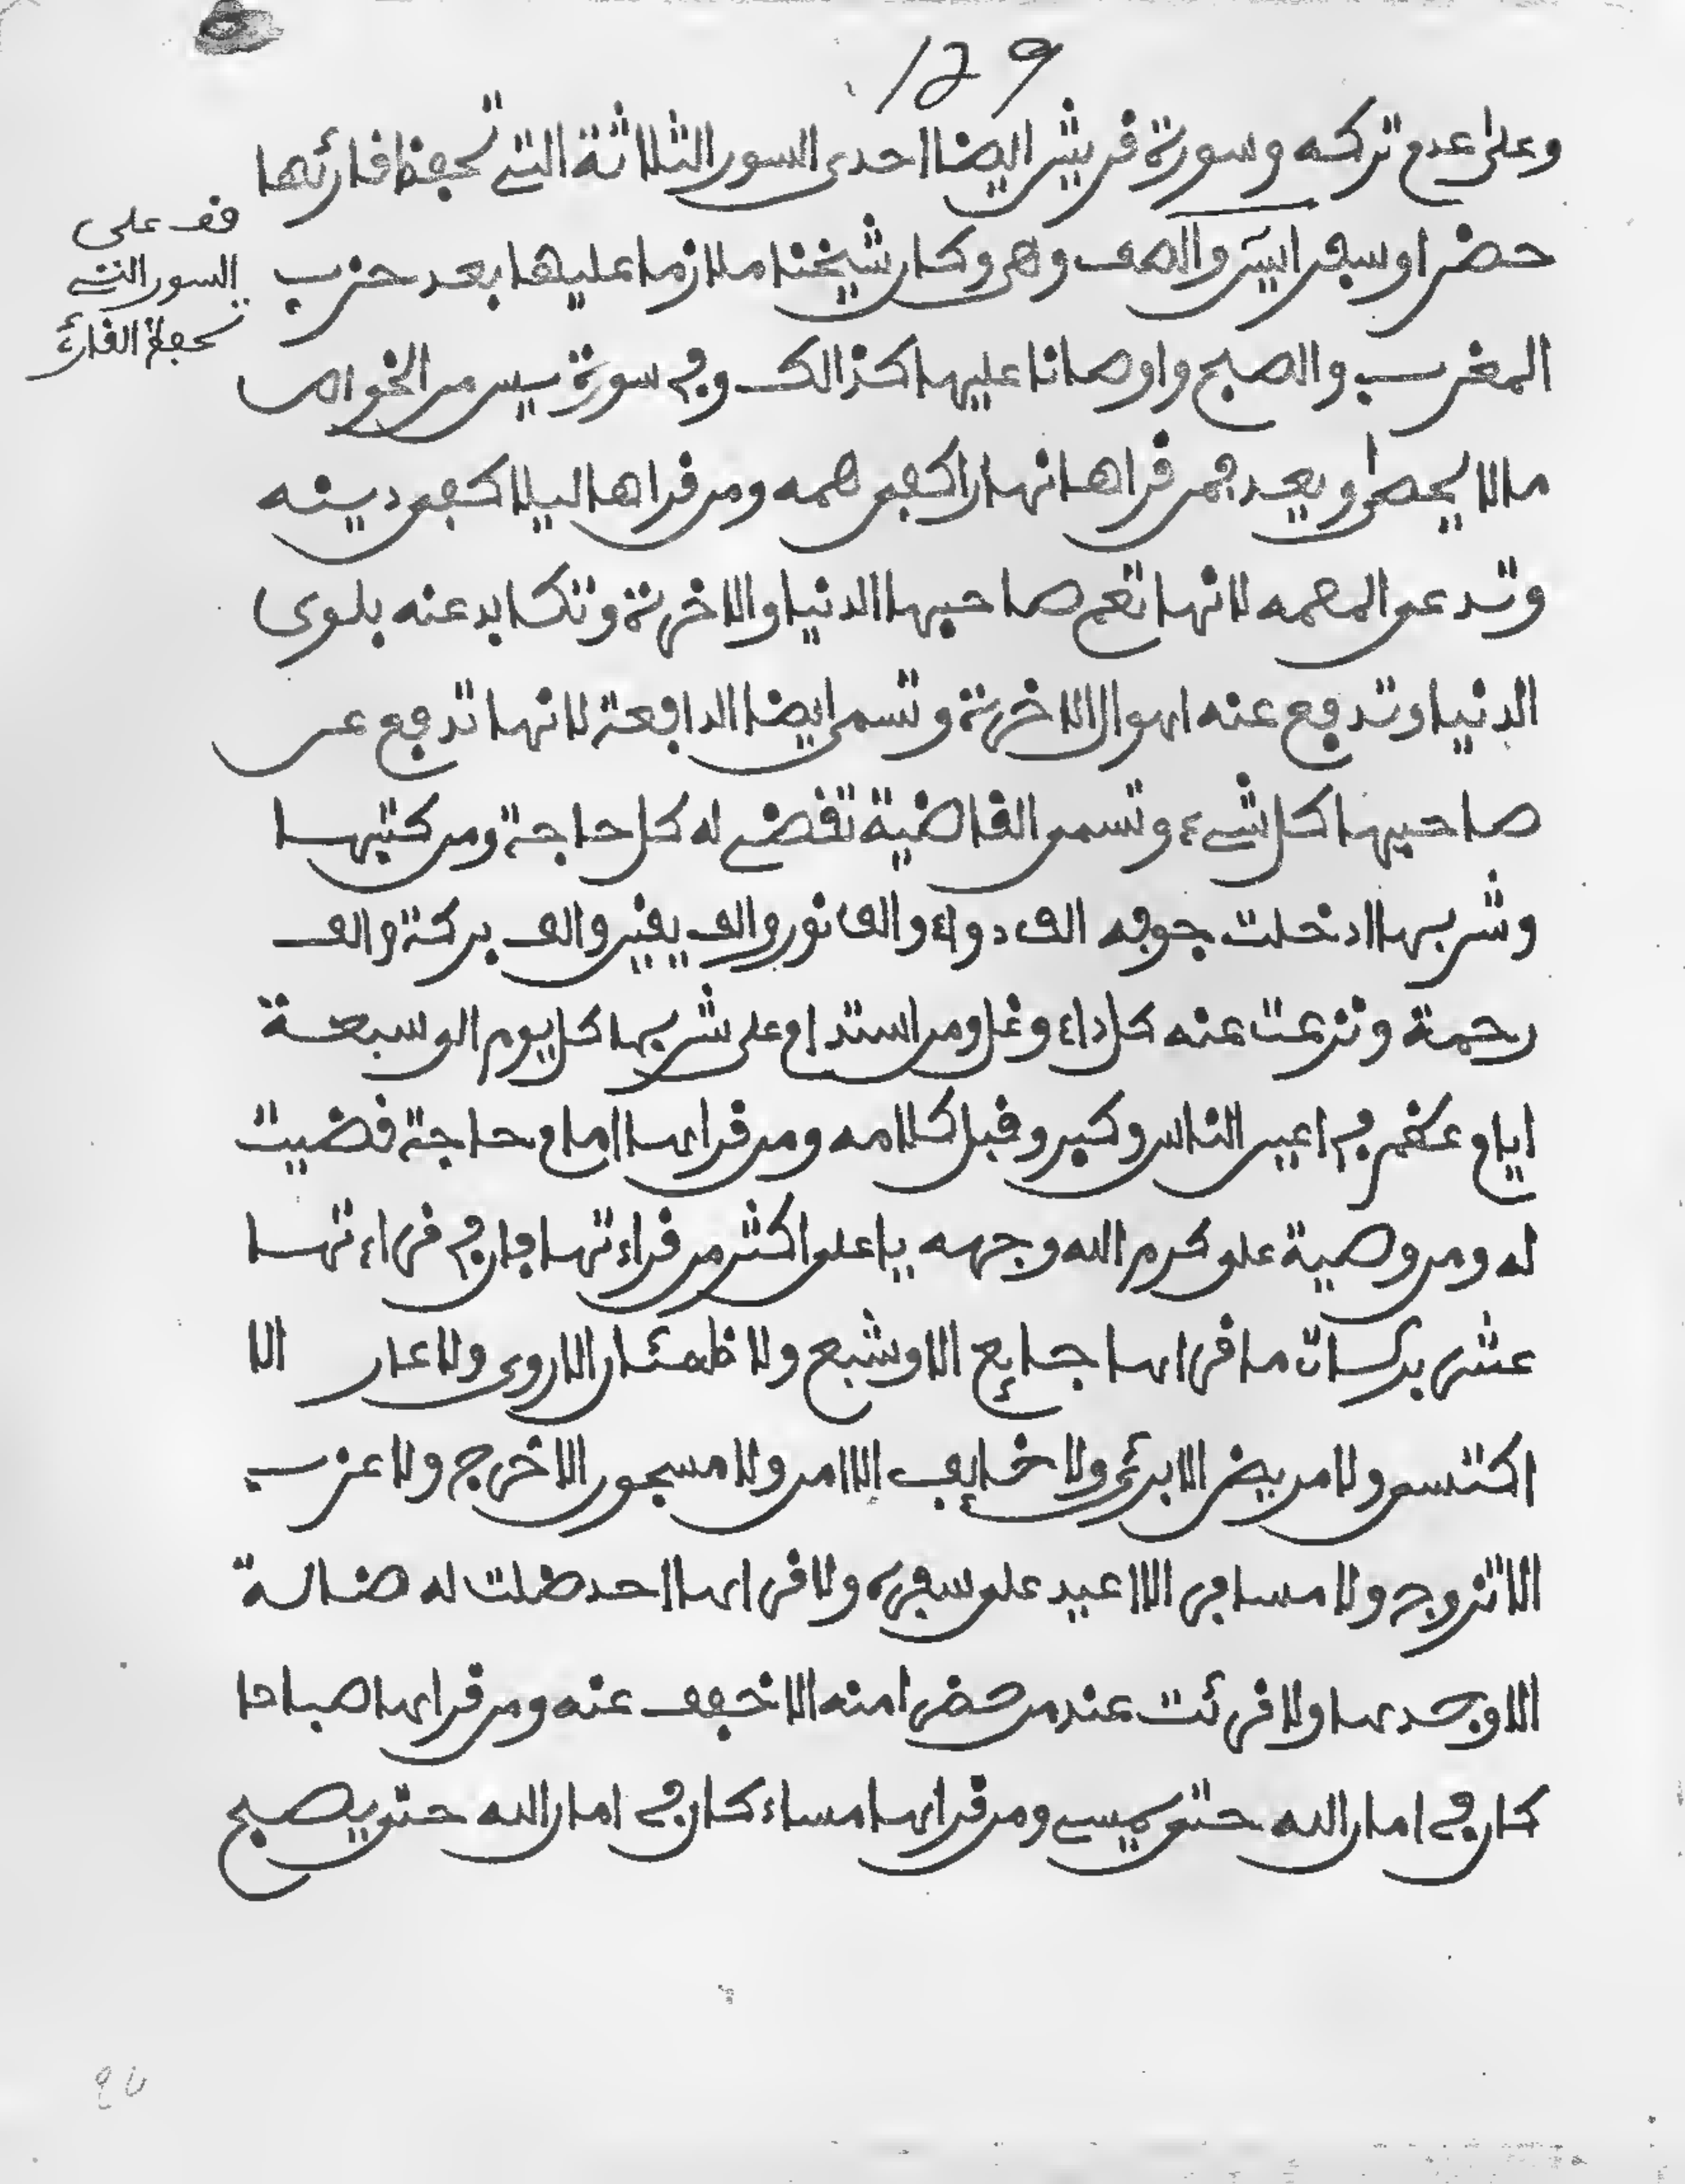 129
وعلى عدم تركه وسورة قريش ايضا احدى السور الثلاثة التي تحفظ قارئها
حضرا وسفرا يس والصف وهي وكان شيخنا ملازما عليها بعد حزب
المغرب والصبح واوصانا عليها كذالك وفي سورة يس من الخواص
مالا يحصى ويعد فمن قراها نهارا كفي همه ومن قراها ليلا كفي دينه
وتدعى المعمه لانها تعم صاحبها الدنيا والاخرة وتكابد عنه بلوى
الدنيا وتدفع عنه اهوال الاخرة وتسمى ايضا الدافعة لانها تدفع عن
صاحبها كل شيء وتسمى القاضية تقضي له كل حاجة ومن كتبها
وشربها ادخلت جوفه الف دواء والف نور والف يقين والف بركة والف
رحمة ونزعت عنه كل داء وغل ومن استدام على شربها كل يوم الى سبعة
ايام عظم في اعين الناس وكبر وقبل كلامه ومن قراها امام حاجة قضيت
له ومن وصية علي كرم الله وجهه يا علي اكثر من قراءتها فان في قراءتها
عشر بركات ما قراها جايع الا وشبع ولا ظمئان الا روى ولا عار الا
اكتسى ولا مريض الا برئ ولا خايف الا امن ولا مسجون الا خرج ولا عزب
الا تزوج ولا مسافر الا اعين على سفره ولا قراها احد ضلت له ضالة
الا وجدها ولا قرئت عند من حضر امنه الا خفف عنه ومن قراها صباحا
كان في امان الله حتى يمسي ومن قراها مساء كان في امان الله حتى يصبح
قف على
السور التي
تحفظ القارئ